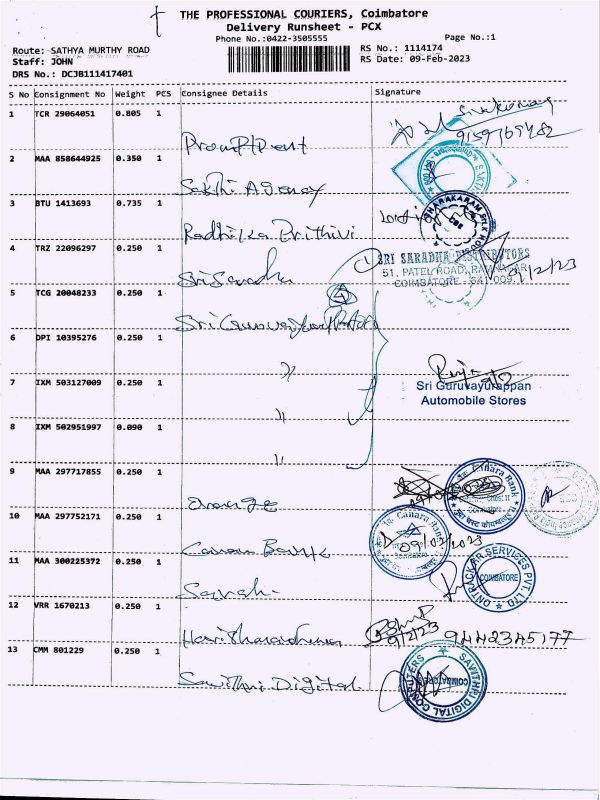 THE PROFESSIONAL COURIERS, Coimbatore
Delivery Runsheet - PCX
Phone No.:0422-3505555
Page No.:1
Route: SATHYA MURTHY ROAD
RS No.: 1114174
Staff: JOHN
RS Date: 09-Feb-2023
DRS No.: DCJB111417401
S No Consignment No Weight PCS Consignee Details Signature
1 TCR 29064051 0.805 1
Sivakumar
9159769482
2 MAA 858644925 0.350 1
Sakthi Agency
3 BTU 1413693 0.735 1
Radhika Prithivi
4 TRZ 22096297 0.250 1
Sri Saradha
SRI SARADHA DISTRIBUTORS
51, PATEL ROAD, RAM NAGAR
COIMBATORE - 641 009.
5 TCG 20048233 0.250 1
6 DPI 10395276 0.250 1
"
7 IXM 503127009 0.250 1
"
Sri Guruvayurappan
Automobile Stores
8 IXM 502951997 0.090 1
"
9 MAA 297717855 0.250 1
orange
Canara Bank
10 MAA 297752171 0.250 1
Canara Bank
Canara Bank
09/02/2023
11 MAA 300225372 0.250 1
ONTRACKAR SERVICES PVT. LTD
COIMBATORE
12 VRR 1670213 0.250 1
9/2/23
9442345177
13 CMM 801229 0.250 1
Savithri Digital
SAVITHRI DIGITAL COMPUTERS
COIMBATORE